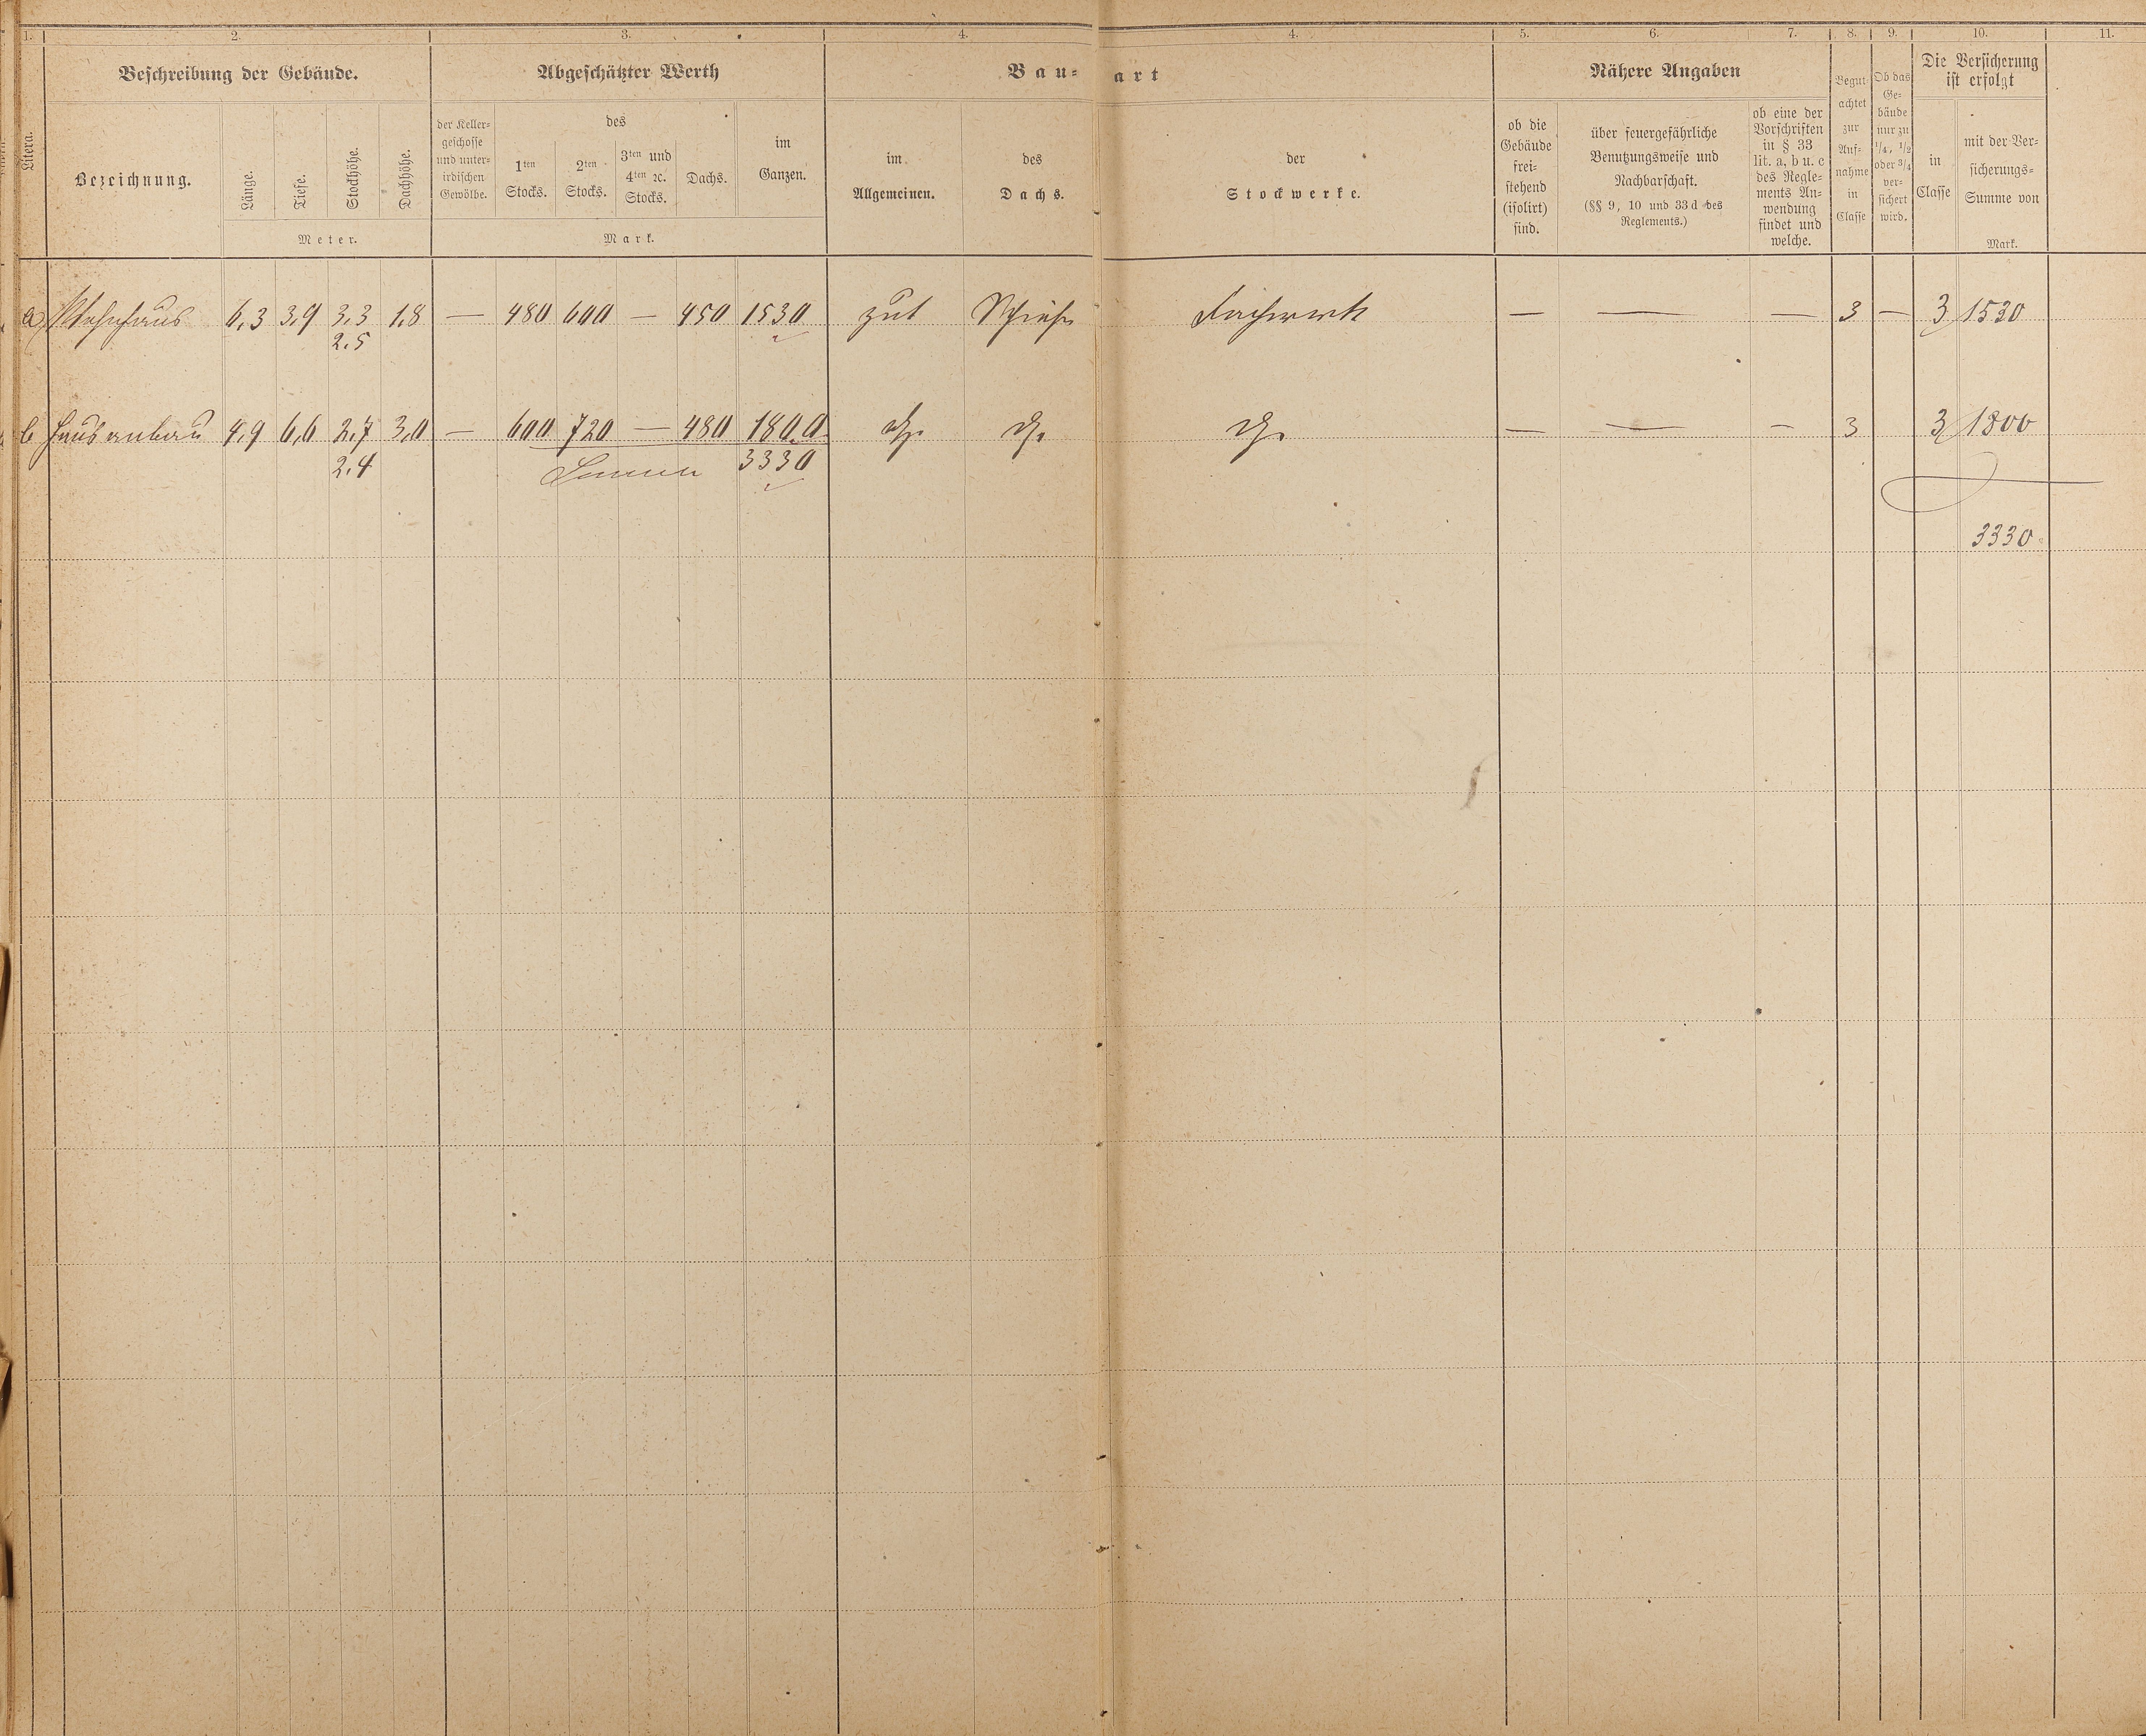 1. 2. 3. 4. 4. 5. 6. 7. 8. 9. 10. 11.
Litera.
Beschreibung der Gebäude.
Bezeichnung.
Länge.
Tiefe.
Stockhöhe.
Dachhöhe.
Meter.
Abgeschätzter Werth
der Keller-
geschosse
und unter-
irdischen
Gewölbe.
des
1ten
Stocks.
2ten
Stocks.
3ten und
4ten ꝛc.
Stocks.
Dachs.
im
Ganzen.
Mark.
Bau-art
im
Allgemeinen.
des
Dachs.
der
Stockwerke.
Nähere Angaben
ob die
Gebäude
frei-
stehend
(isolirt)
sind.
über feuergefährliche
Benutzungsweise und
Nachbarschaft.
(§§ 9, 10 und 33 d des
Reglements.)
ob eine der
Vorschriften
in § 33
lit. a, b u. c
des Regle-
ments An-
wendung
findet und
welche.
Begut-
achtet
zur
Auf-
nahme
in
Classe
Ob das
Ge-
bäude
nur zu
1/4, 1/2
oder 3/4
ver-
sichert
wird.
Die Versicherung
ist erfolgt
in
Classe
mit der Ver-
sicherungs-
Summe von
Mark.
a Wohnhaus 6,3 3,9 3,3 1,8 — 480 600 — 450 1530 gut Schiefer Fachwerk — — — 3 — 3 1530
2.5
b Hausanbau 4,9 6,6 2,7 3,0 — 600 720 — 480 1800 do. do. do. — — — 3 3 1800
2.4 Summa 3330
3330